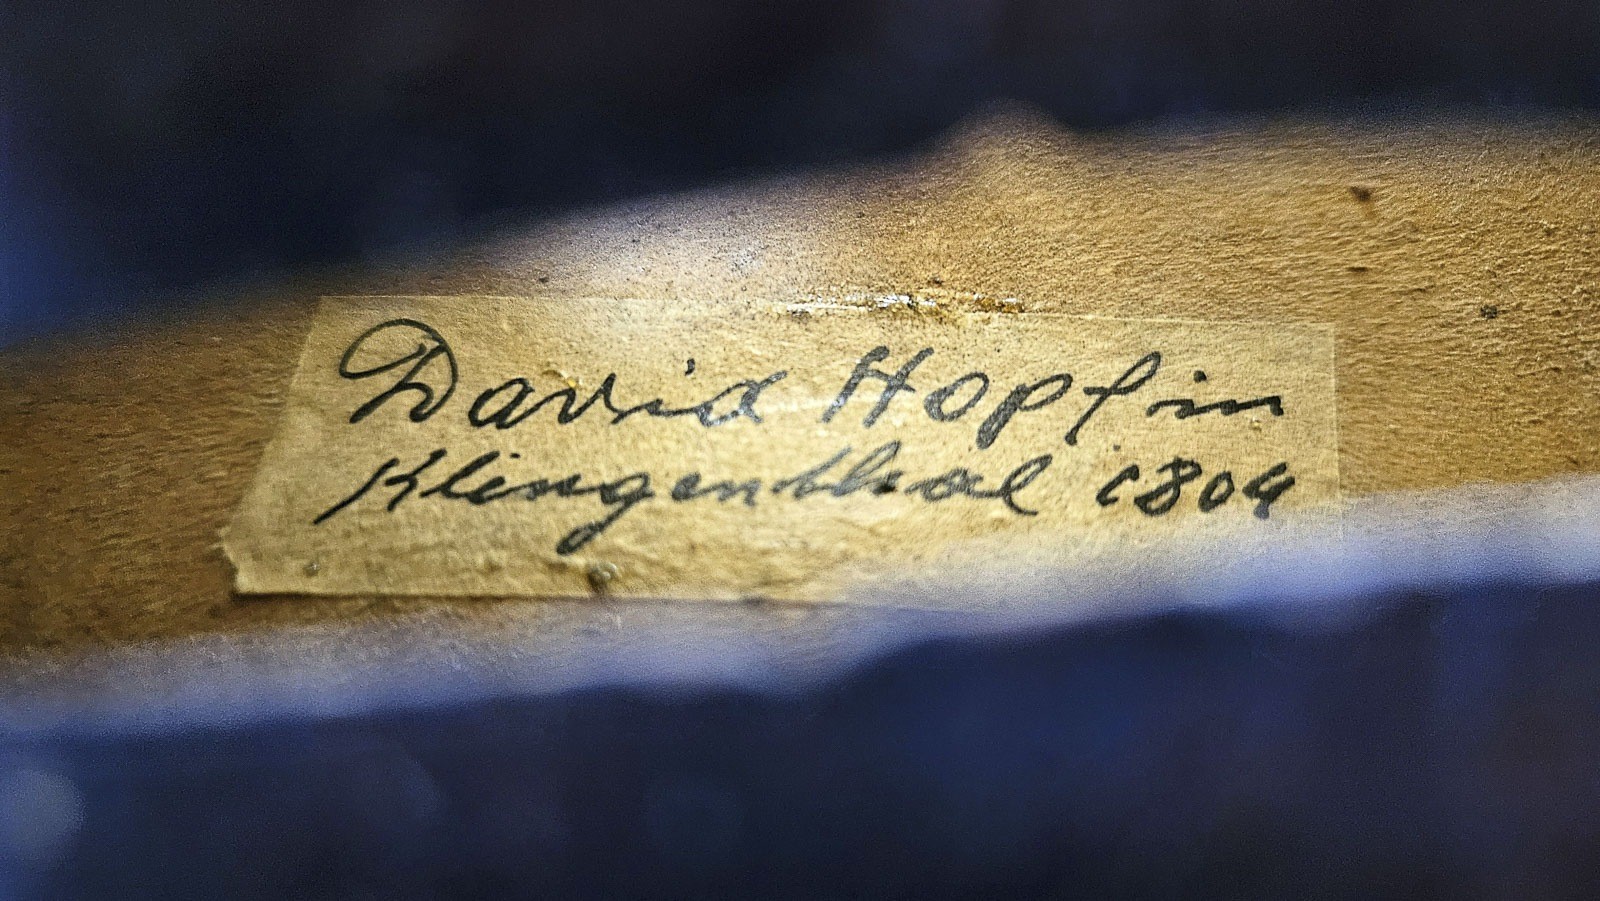 David Hopf in
Klingenthal 1804